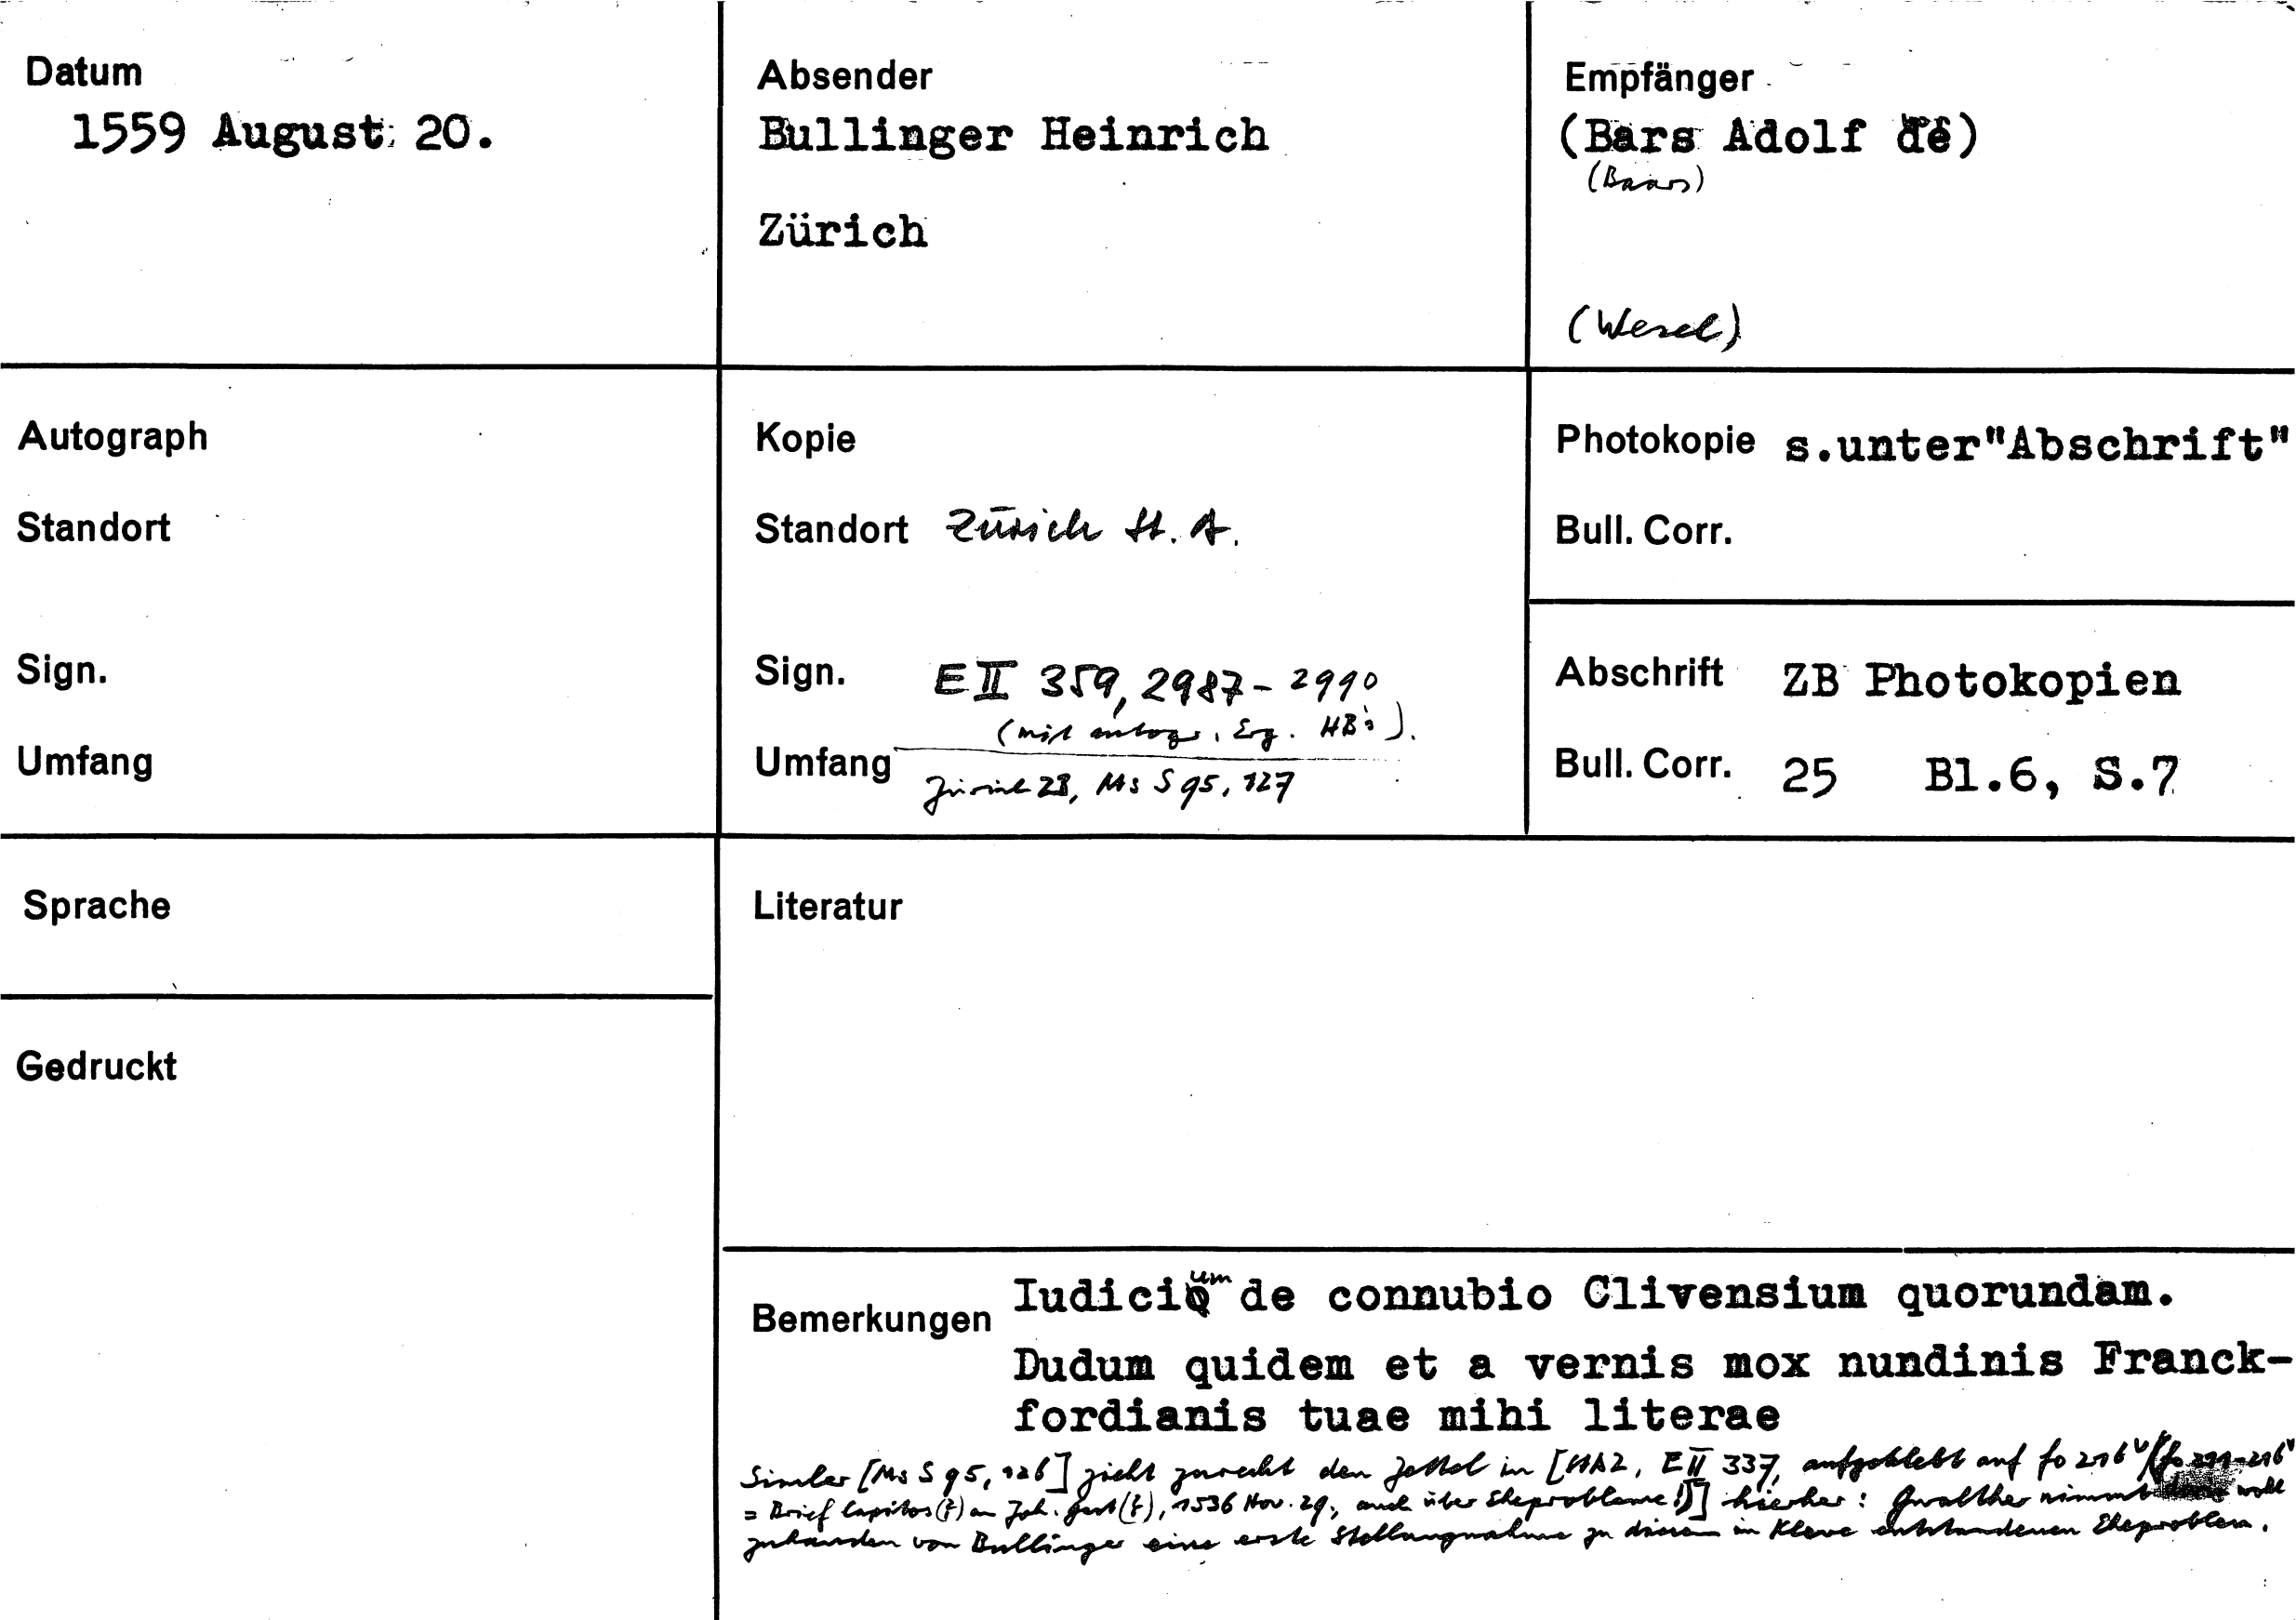 Datum
1559 August 20.
Absender
Bullinger Heinrich
Zürich
Empfänger
(Bars Adolf de)
(Baars)
(Wesel)
Autograph
Standort
Sign.
Umfang
Kopie
Standort Zürich St. A.
Sign. E II 359, 2987-2990
(mit autogr. Erg. HB's).
Umfang
Zürich ZB, Ms S 95, 127
Photokopie s.unter"Abschrift"
Bull. Corr.
Abschrift ZB Photokopien
Bull. Corr. 25 Bl.6, S.7
Sprache
Gedruckt
Literatur
Bemerkungen Iudicium de connubio Clivensium quorundam.
Dudum quidem et a vernis mox nundinis Franck-
fordianis tuae mihi literae
Simler [Ms S 95, 126] zieht zurecht den Zettel in [StAZ, E II 337, aufgeklebt auf fo 216v (fo 211-216v
= Brief Capitos(?) an Joh. Gast(?), 1536 Nov. 29, auch über Eheprobleme!)] hierher: Gwalther nimmt wohl
zuhanden von Bullinger eine erste Stellungnahme zu diesem in Kleve entstandenen Eheproblem.